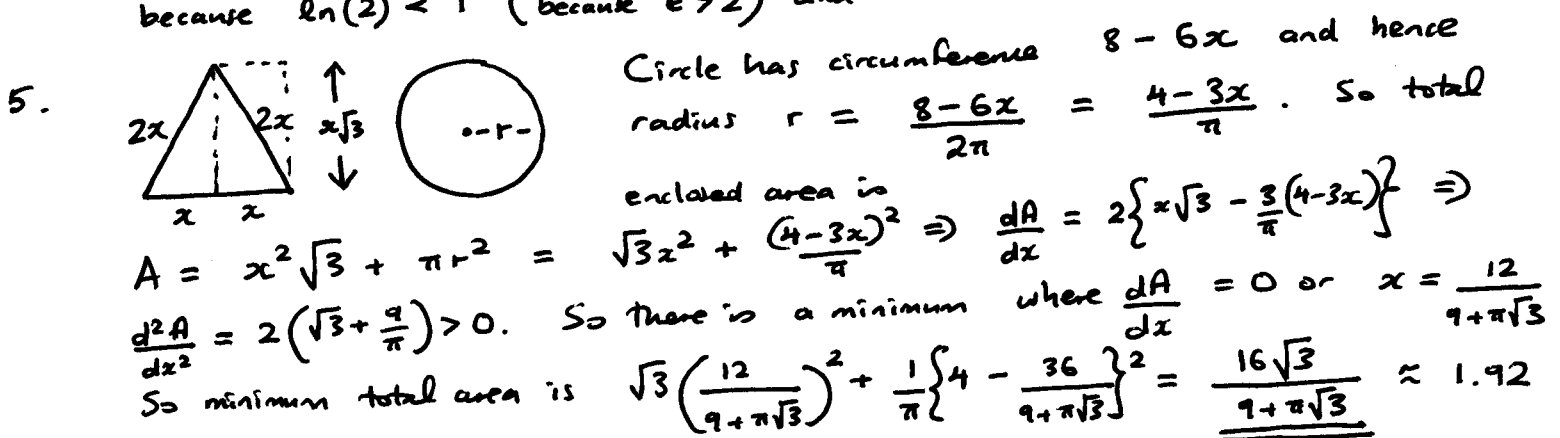 because ln(2) < 1 (because e > 2)
5.
2x 2x x√3 r
x x
Circle has circumference 8 - 6x and hence
radius r = (8-6x)/(2π) = (4-3x)/π. So total
enclosed area is
A = x²√3 + πr² = √3x² + (4-3x)²/π ⇒ dA/dx = 2{x√3 - 3/π(4-3x)} ⇒
d²A/dx² = 2(√3 + 9/π) > 0. So there is a minimum where dA/dx = 0 or x = 12/(9+π√3)
So minimum total area is √3(12/(9+π√3))² + 1/π{4 - 36/(9+π√3)}² = 16√3/(9+π√3) ≈ 1.92